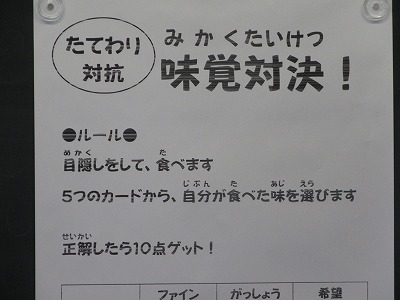 たてわり
対抗
みかくたいけつ
味覚対決！
●ルール●
めかく た
目隠しをして、食べます
じぶん た あじ えら
5つのカードから、自分が食べた味を選びます
せいかい
正解したら10点ゲット！
ファイン がっしょう 希望